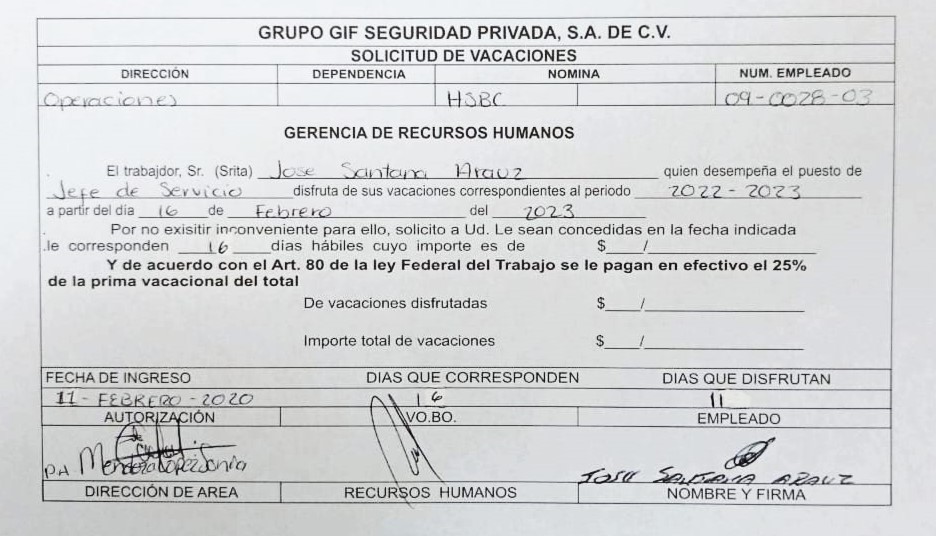 GRUPO GIF SEGURIDAD PRIVADA, S.A. DE C.V.
SOLICITUD DE VACACIONES
DIRECCIÓN DEPENDENCIA NOMINA NUM. EMPLEADO
Operaciones HSBC 09-0028-03
GERENCIA DE RECURSOS HUMANOS
El trabajdor, Sr. (Srita) Jose Santana Arauz quien desempeña el puesto de
Jefe de Servicio disfruta de sus vacaciones correspondientes al periodo 2022-2023
a partir del dia 16 de Febrero del 2023
Por no exisitir inconveniente para ello, solicito a Ud. Le sean concedidas en la fecha indicada
.le corresponden 16 días hábiles cuyo importe es de $ /
Y de acuerdo con el Art. 80 de la ley Federal del Trabajo se le pagan en efectivo el 25%
de la prima vacacional del total
De vacaciones disfrutadas $ /
Importe total de vacaciones $ /
FECHA DE INGRESO DIAS QUE CORRESPONDEN DIAS QUE DISFRUTAN
11-FEBRERO-2020 16 11
AUTORIZACIÓN VO.BO. EMPLEADO
PA Mendoza Lopez Sonia JOSE SANTANA ARAUZ
DIRECCIÓN DE AREA RECURSOS HUMANOS NOMBRE Y FIRMA